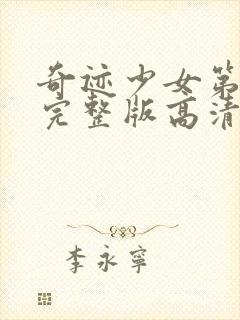 奇迹少女第
完整版高清
李永寧